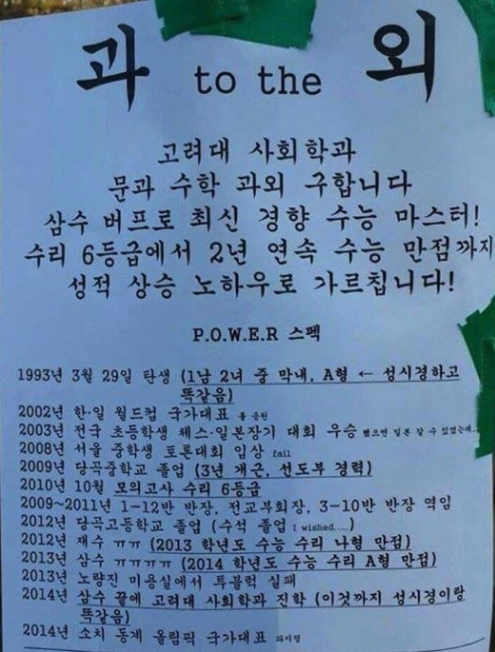 과 to the 외
고려대 사회학과
문과 수학 과외 구합니다
삼수 버프로 최신 경향 수능 마스터!
수리 6등급에서 2년 연속 수능 만점까지
성적 상승 노하우로 가르칩니다!
P.O.W.E.R 스펙
1993년 3월 29일 탄생 (1남 2녀 중 막내, A형 ← 성시경하고
똑같음)
2002년 한·일 월드컵 국가대표 응원
2003년 전국 초등학생 체스·일본장기 대회 우승 했으면 일본 갈 수 있었는데..
2008년 서울 중학생 토론대회 입상 fail
2009년 당곡중학교 졸업 (3년 개근, 선도부 경력)
2010년 10월 모의고사 수리 6등급
2009~2011년 1-12반 반장, 전교부회장, 3-10반 반장 역임
2012년 당곡고등학교 졸업 (수석 졸업 I wished.....)
2012년 재수 ㅠㅠ (2013 학년도 수능 수리 나형 만점)
2013년 삼수 ㅠㅠㅠㅠ (2014 학년도 수능 수리 A형 만점)
2013년 노량진 미용실에서 투블럭 실패
2014년 삼수 끝에 고려대 사회학과 진학 (이것까지 성시경이랑
똑같음)
2014년 소치 동계 올림픽 국가대표 화이팅